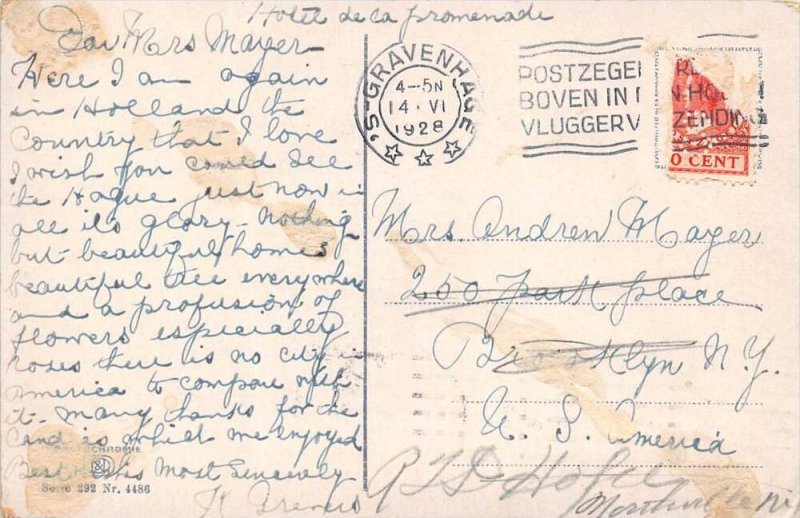 Hotel de la promenade
Dear Mrs Mayer
Here I am again
in Holland the
Country that I love
I wish you could see
the Hague just now in
all its glory - nothing
but beautiful homes
beautiful tree everywhere
and a profusion of
flowers especially
roses there is no city in
America to compare with
it - many thanks for the
Cand is which we enjoyed
Best wishes Most Sincerely
Serie 292 Nr. 4486
'S-GRAVENHAGE
4-5N
14 VI
1928
POSTZEGEL
BOVEN IN
VLUGGER V
ZENDING
0 CENT
Mrs. Andrew Mayer
250 Park place
Brooklyn N.Y.
U. S. America
Hotel